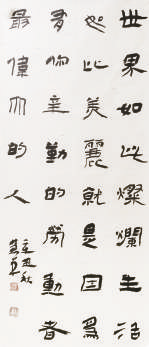 世界如此燦爛生活
如此美麗就是因為
有你辛勤的勞動者
最偉大的人
辛丑秋